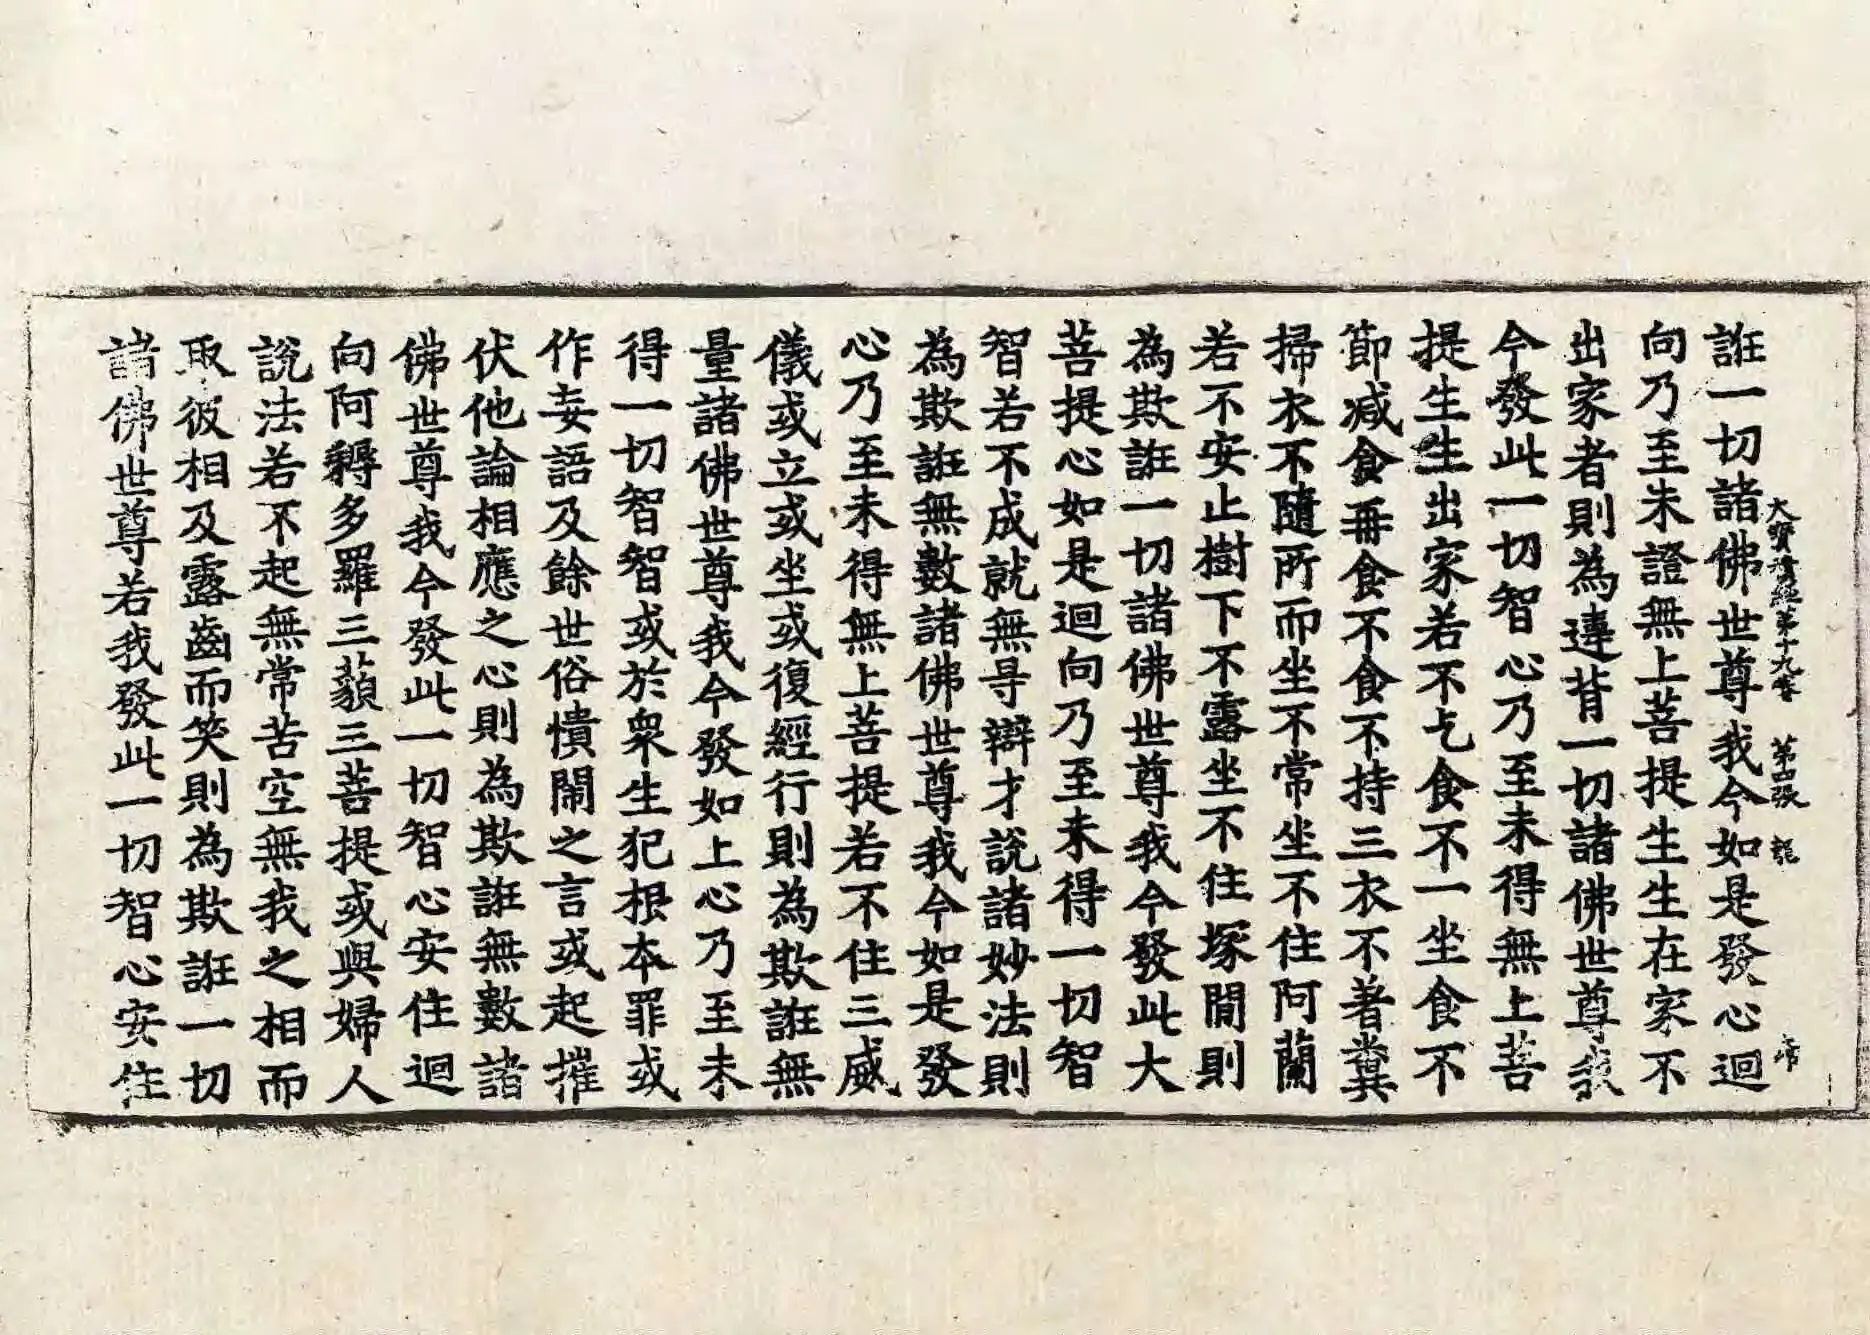 大寶積經第十九卷 第四張 龍 帝
誑一切諸佛世尊我今如是發心迴
向乃至未證無上菩提生生在家不
出家者則為違背一切諸佛世尊我
今發此一切智心乃至未得無上菩
提生生出家若不乞食不一坐食不
節减食再食不食不持三衣不著糞
掃衣不隨所而坐不常坐不住阿蘭
若不安止樹下不露坐不住塚間則
為欺誑一切諸佛世尊我今發此大
菩提心如是迴向乃至未得一切智
智若不成就無㝵辯才說諸妙法則
為欺誑無數諸佛世尊我今如是發
心乃至未得無上菩提若不住三威
儀或立或坐或復經行則為欺誑無
量諸佛世尊我今發如上心乃至未
得一切智智或於衆生犯根本罪或
作妄語及餘世俗憒閙之言或起摧
伏他論相應之心則為欺誑無數諸
佛世尊我今發此一切智心安住迴
向阿耨多羅三藐三菩提或與婦人
說法若不起無常苦空無我之相而
取彼相及露齒而笑則為欺誑一切
諸佛世尊若我發此一切智心安住